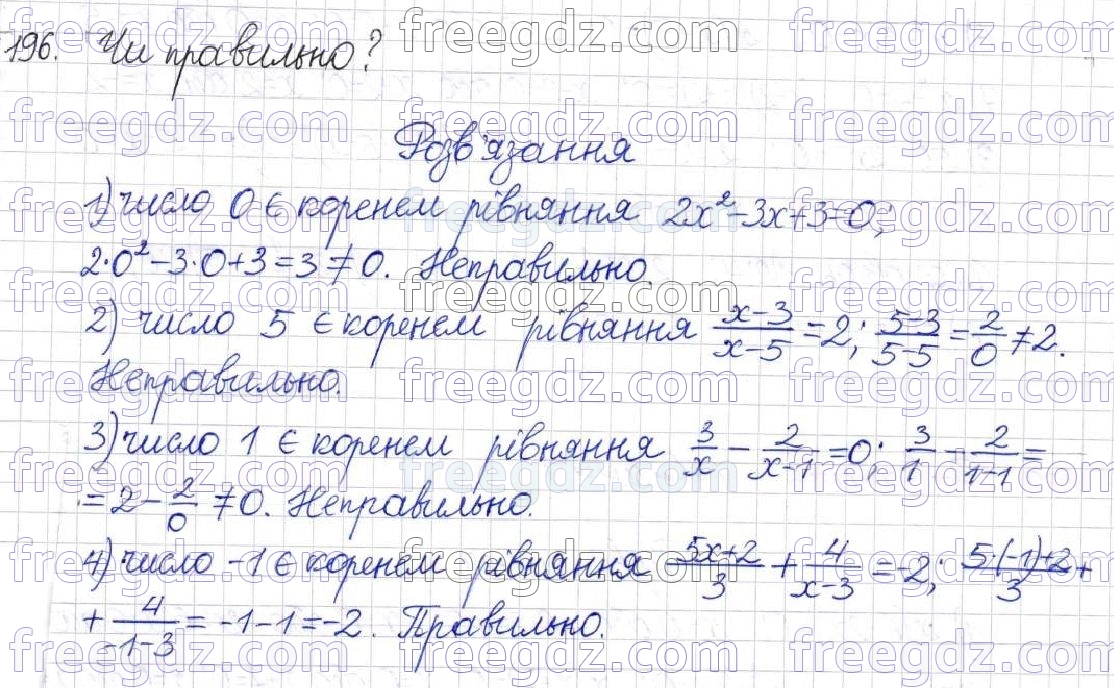 196. Чи правильно?
Розв'язання
1) число 0 є коренем рівняння 2x²-3x+3=0;
2·0²-3·0+3=3≠0. Неправильно.
2) число 5 є коренем рівняння (x-3)/(x-5)=2; (5-3)/(5-5)=2/0≠2.
Неправильно.
3) число 1 є коренем рівняння 3/x - 2/(x-1)=0; 3/1 - 2/(1-1)=
=2-2/0≠0. Неправильно.
4) число -1 є коренем рівняння (5x+2)/3 + 4/(x-3) =-2; (5·(-1)+2)/3 +
+ 4/(-1-3) = -1-1=-2. Правильно.